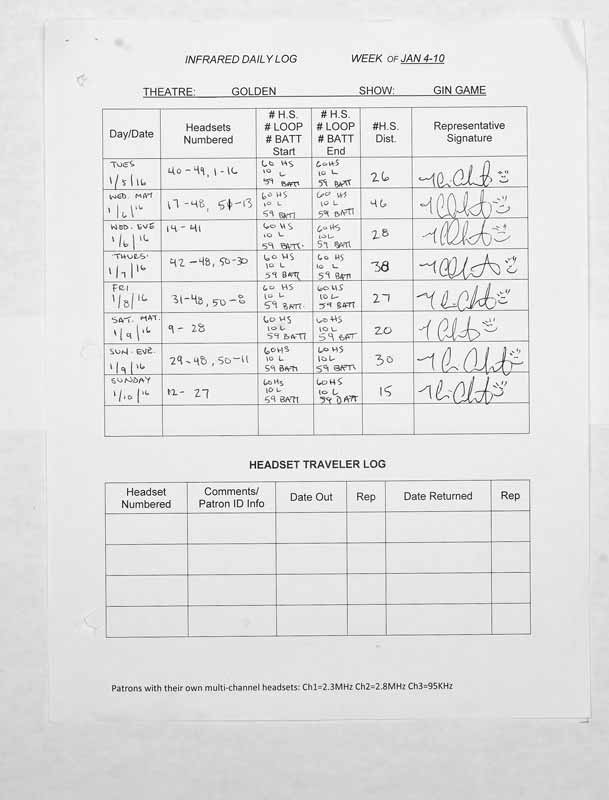 INFRARED DAILY LOG WEEK OF JAN 4-10
THEATRE: GOLDEN SHOW: GIN GAME
Day/Date Headsets Numbered # H.S. # LOOP # BATT Start # H.S. # LOOP # BATT End #H.S. Dist. Representative Signature
TUES 1/5/16 40-49, 1-16 60 HS 10 L 59 BATT 60HS 10 L 59 BATT 26
WED. MAT 1/6/16 17-48, 50-13 60 HS 10 L 59 BATT 60 HS 10 L 59 BATT 46
WED. EVE 1/6/16 14-41 60 HS 10 L 59 BATT. 60 HS 10L 59 BATT 28
THURS. 1/7/16 42-48, 50-30 60 HS 10 L 59 BATT 60 HS 10 L 59 BATT 38
FRI 1/8/16 31-48, 50-8 60 HS 10 L 59 BATT. 60 HS 10 L 59 BATT 27
SAT. MAT. 1/9/16 9-28 60 HS 10 L 59 BATT 60 HS 10 L 59 BAT 20
SUN. EVE. 1/9/16 29-48, 50-11 60HS 10 L 59 BATT 60 HS 10 L 59 BATT 30
SUNDAY 1/10/16 12-27 60HS 10 L 59 BATT 60 HS 10 L 59 BATT 15
HEADSET TRAVELER LOG
Headset Numbered Comments/ Patron ID Info Date Out Rep Date Returned Rep
Patrons with their own multi-channel headsets: Ch1=2.3MHz Ch2=2.8MHz Ch3=95KHz